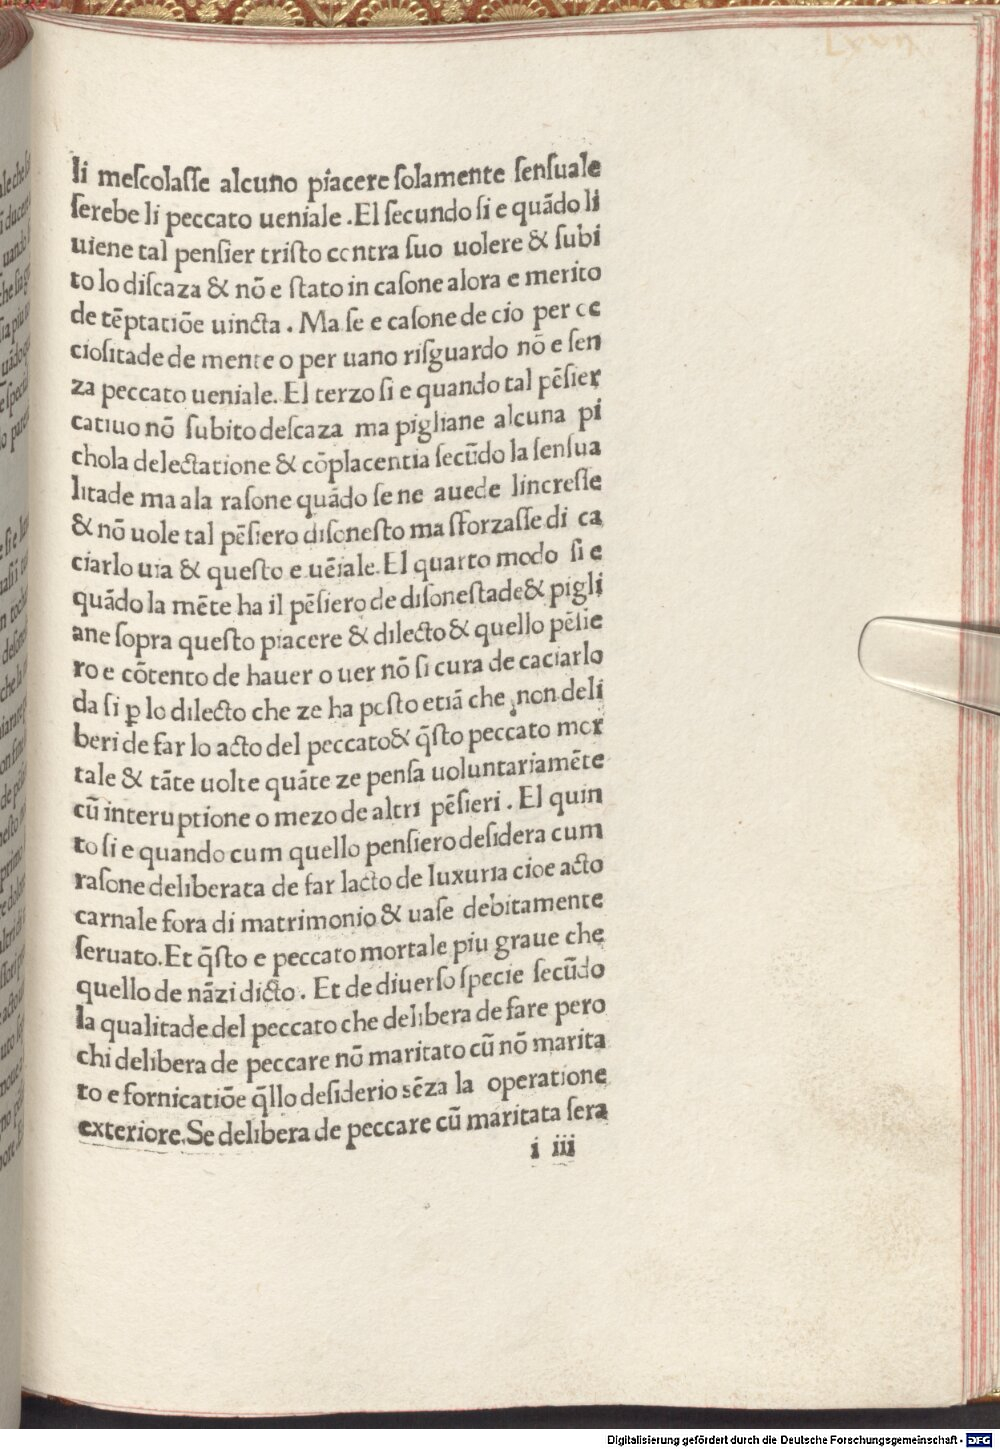 li meſcolaſſe alcuno piacere ſolamente ſenſuale
ſerebe li peccato ueniale .El ſecundo ſi e quādo li
uiene tal penſier triſto contra ſuo uolere & ſubi
to lo diſcaza & nō e ſtato in caſone alora e merito
de tēptatiōe uincta . Ma ſe e caſone de cio per oc
cioſitade de mente o per uano riſguardo nō e ſen
za peccato ueniale. El terzo ſi e quando tal pēſier
catiuo nō ſubito deſcaza ma pigliane alcuna pi
chola delectatione & cōplacentia ſecūdo la ſenſua
litade ma ala raſone quādo ſe ne auede lincreſſe
& nō uole tal pēſiero diſoneſto ma sforzaſſe di ca
ciarlo uia & queſto e uēiale. El quarto modo ſi e
quādo la mēte ha il pēſiero de diſoneſtade & pigli
ane ſopra queſto piacere & dilecto & quello pēſie
ro e cōtento de hauer o uer nō ſi cura de caciarlo
da ſi ꝑ lo dilecto che ze ha poſto etiā che non deli
beri de far lo acto del peccato & q̄ſto peccato mor
tale & tāte uolte quāte ze penſa uoluntariamēte
cū interuptione o mezo de altri pēſieri . El quin
to ſi e quando cum quello penſiero deſidera cum
raſone deliberata de far lacto de luxuria cioe acto
carnale fora di matrimonio & uaſe debitamente
ſeruato. Et q̄ſto e peccato mortale piu graue che
quello de nāzi dicto . Et de diuerſo ſpecie ſecūdo
la qualitade del peccato che delibera de fare pero
chi delibera de peccare nō maritato cū nō marita
to e fornicatiōe q̄llo deſiderio sēza la operatione
exteriore. Se delibera de peccare cū maritata ſera
i iii
Digitalisierung gefördert durch die Deutsche Forschungsgemeinschaft - DFG